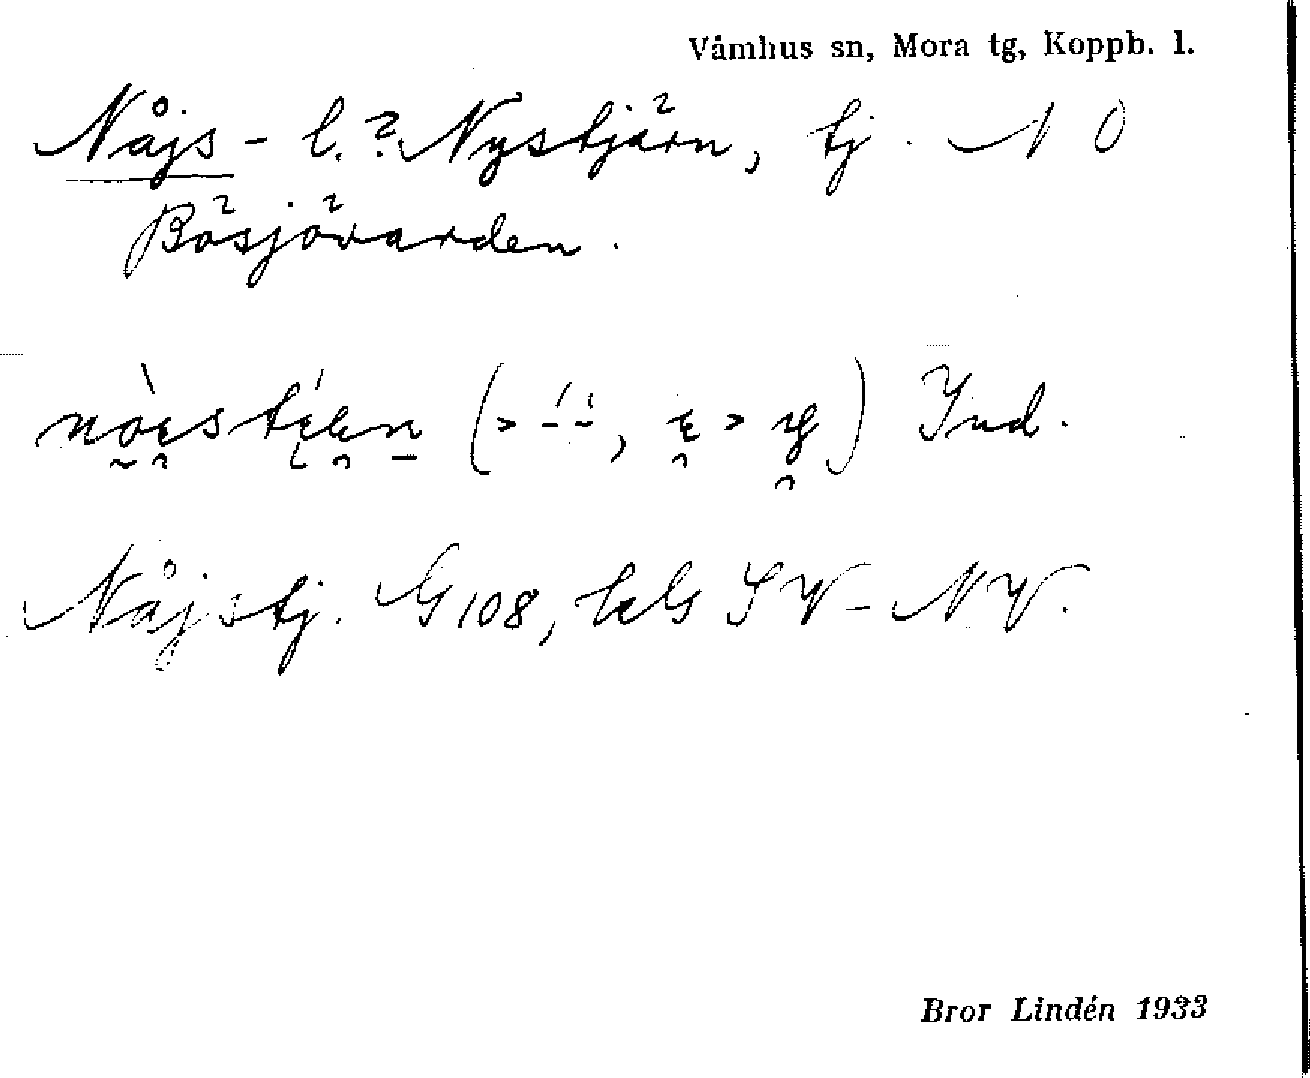 Våmhus sn, Mora tg, Koppb. l.
Nåjs- l. ? Nystjärn, tj. NO
Bösjövarden.
Ind.
Nåjstj. G 108, SV-NV.
Bror Lindén 1933